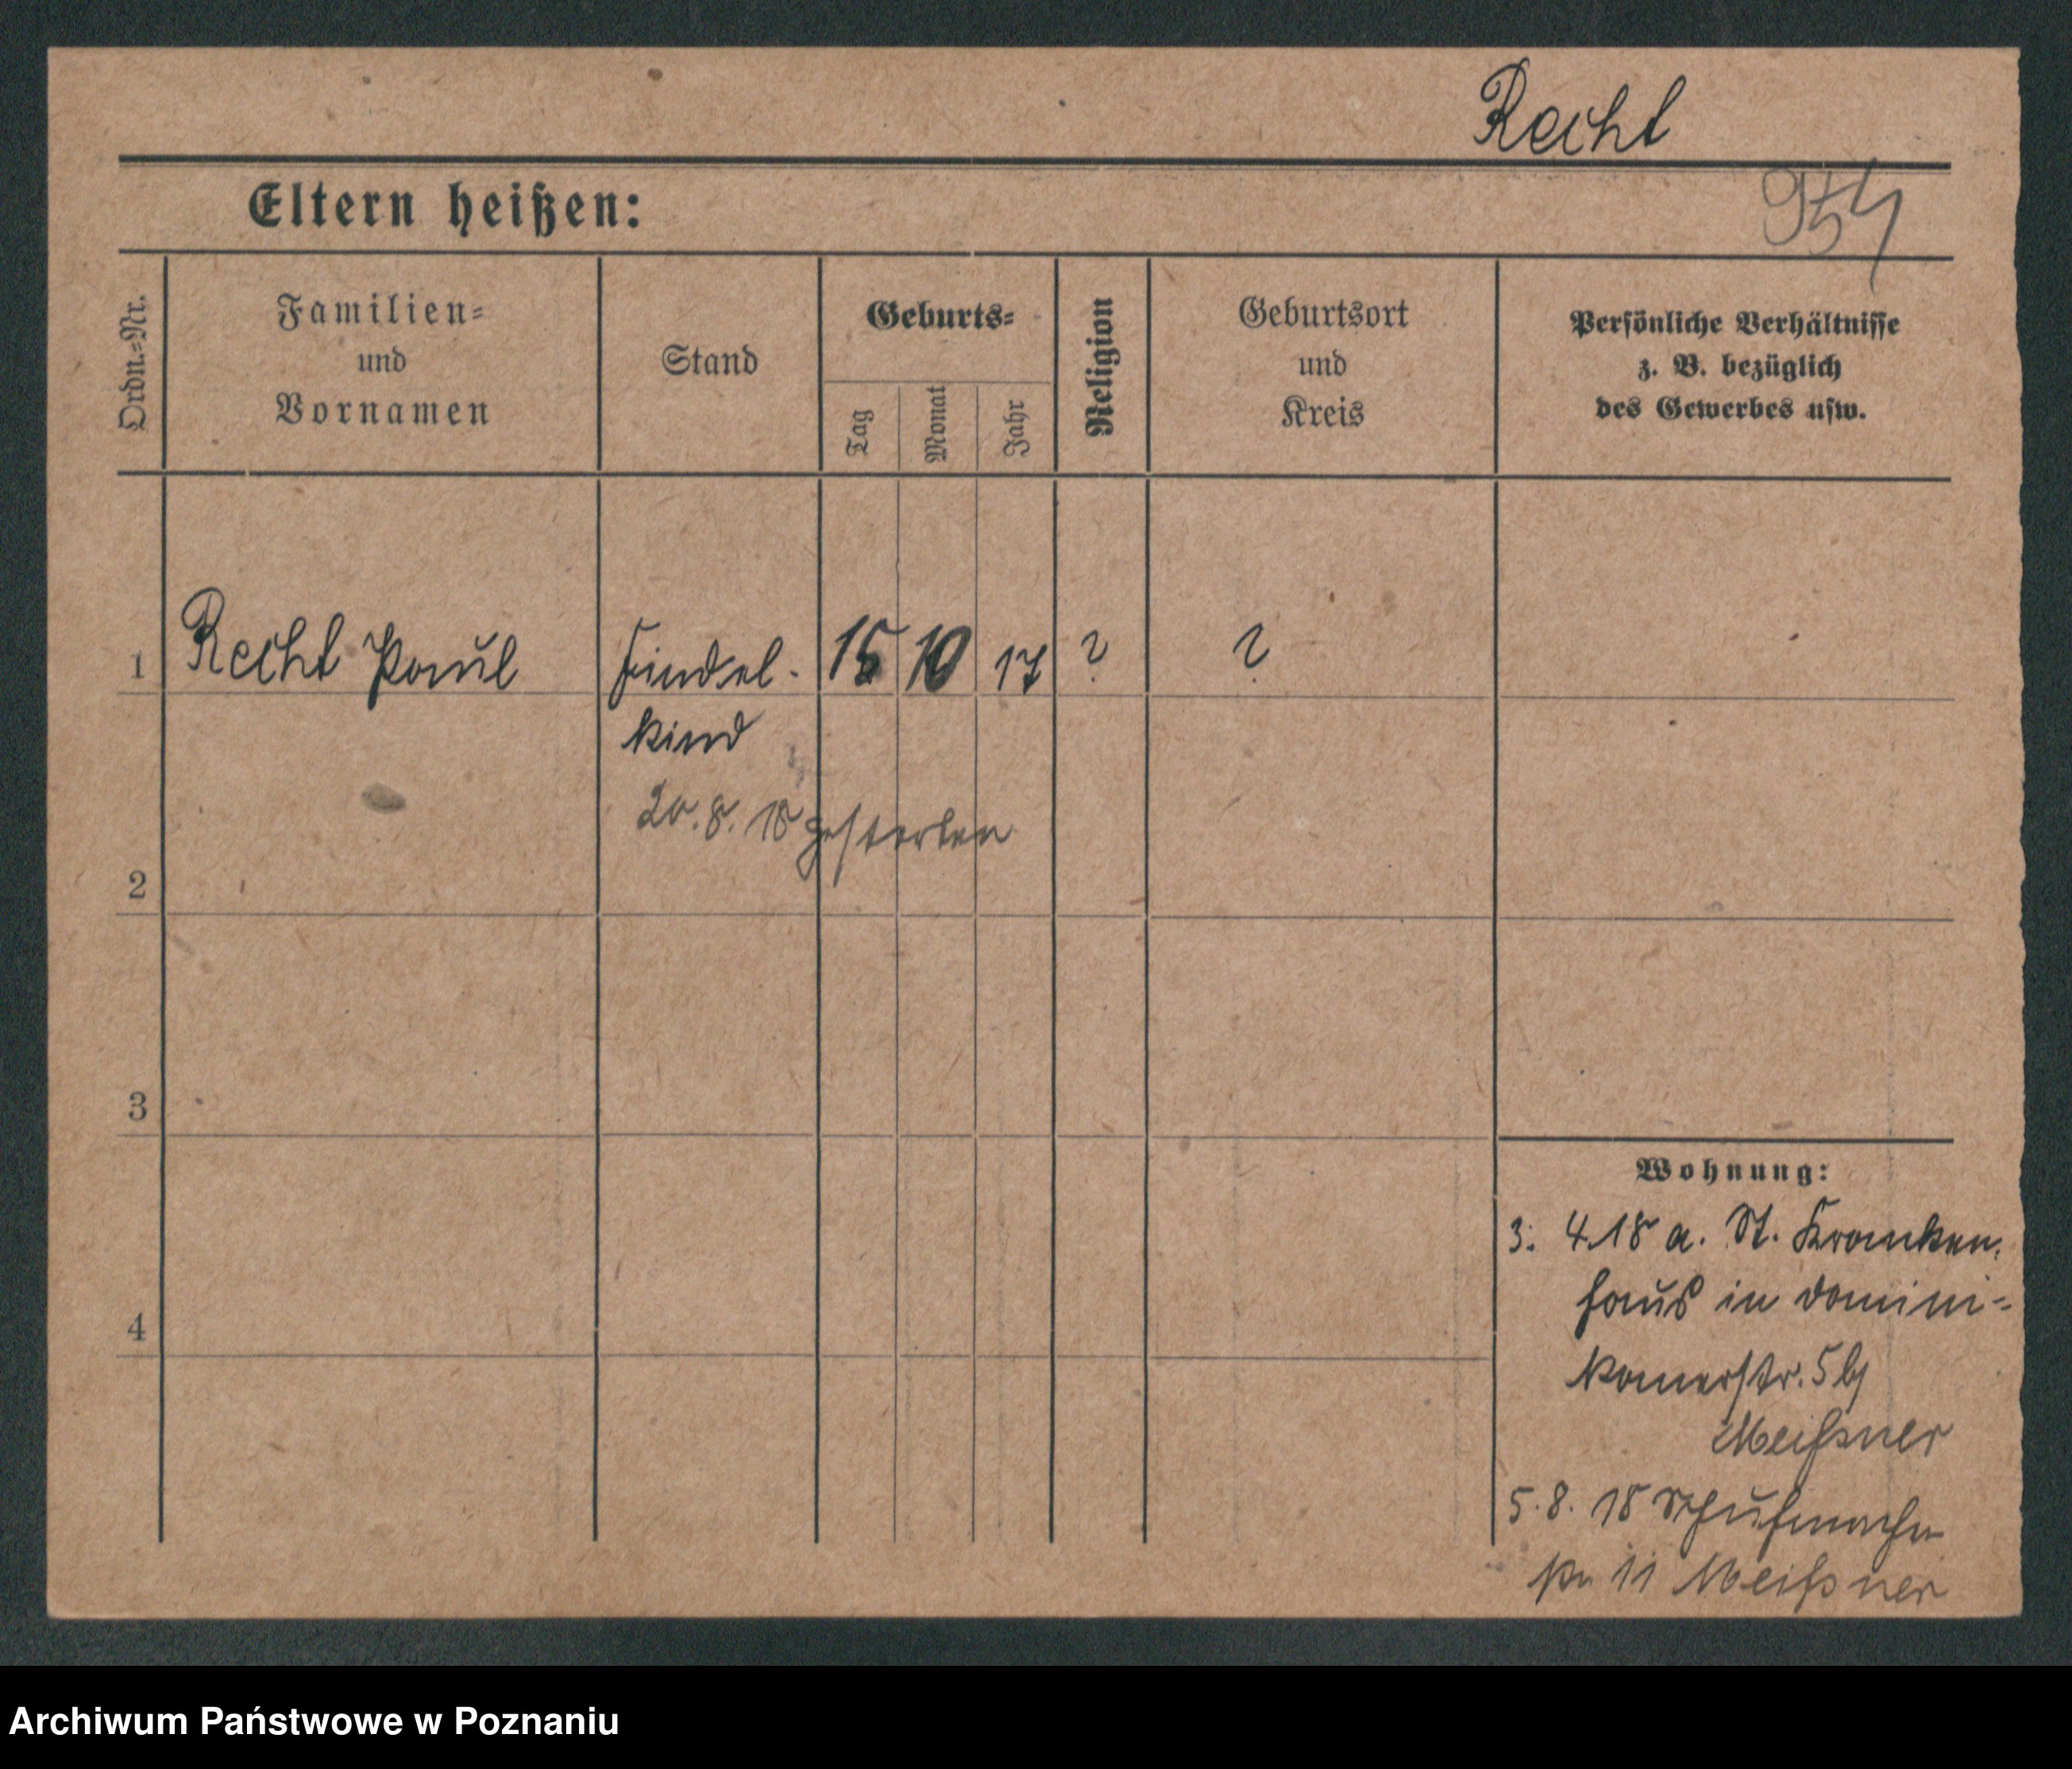 Recht
Eltern heißen:
954
Ordn.-Nr.
Familien-
und
Vornamen
Stand
Geburts-
Tag
Monat
Jahr
Religion
Geburtsort
und
Kreis
Persönliche Verhältnisse
z. B. bezüglich
des Gewerbes usw.
1 Recht Paul Findel- 15 10 17 ? ?
kind
20.8.18 gestorben
2
3
4
Wohnung:
3. 4.18 a. St. Kranken-
haus in Domini-
kanerstr. 5 bj
Meißner
5.8.18 Schuhmacher
str 11 Meißner
Archiwum Państwowe w Poznaniu